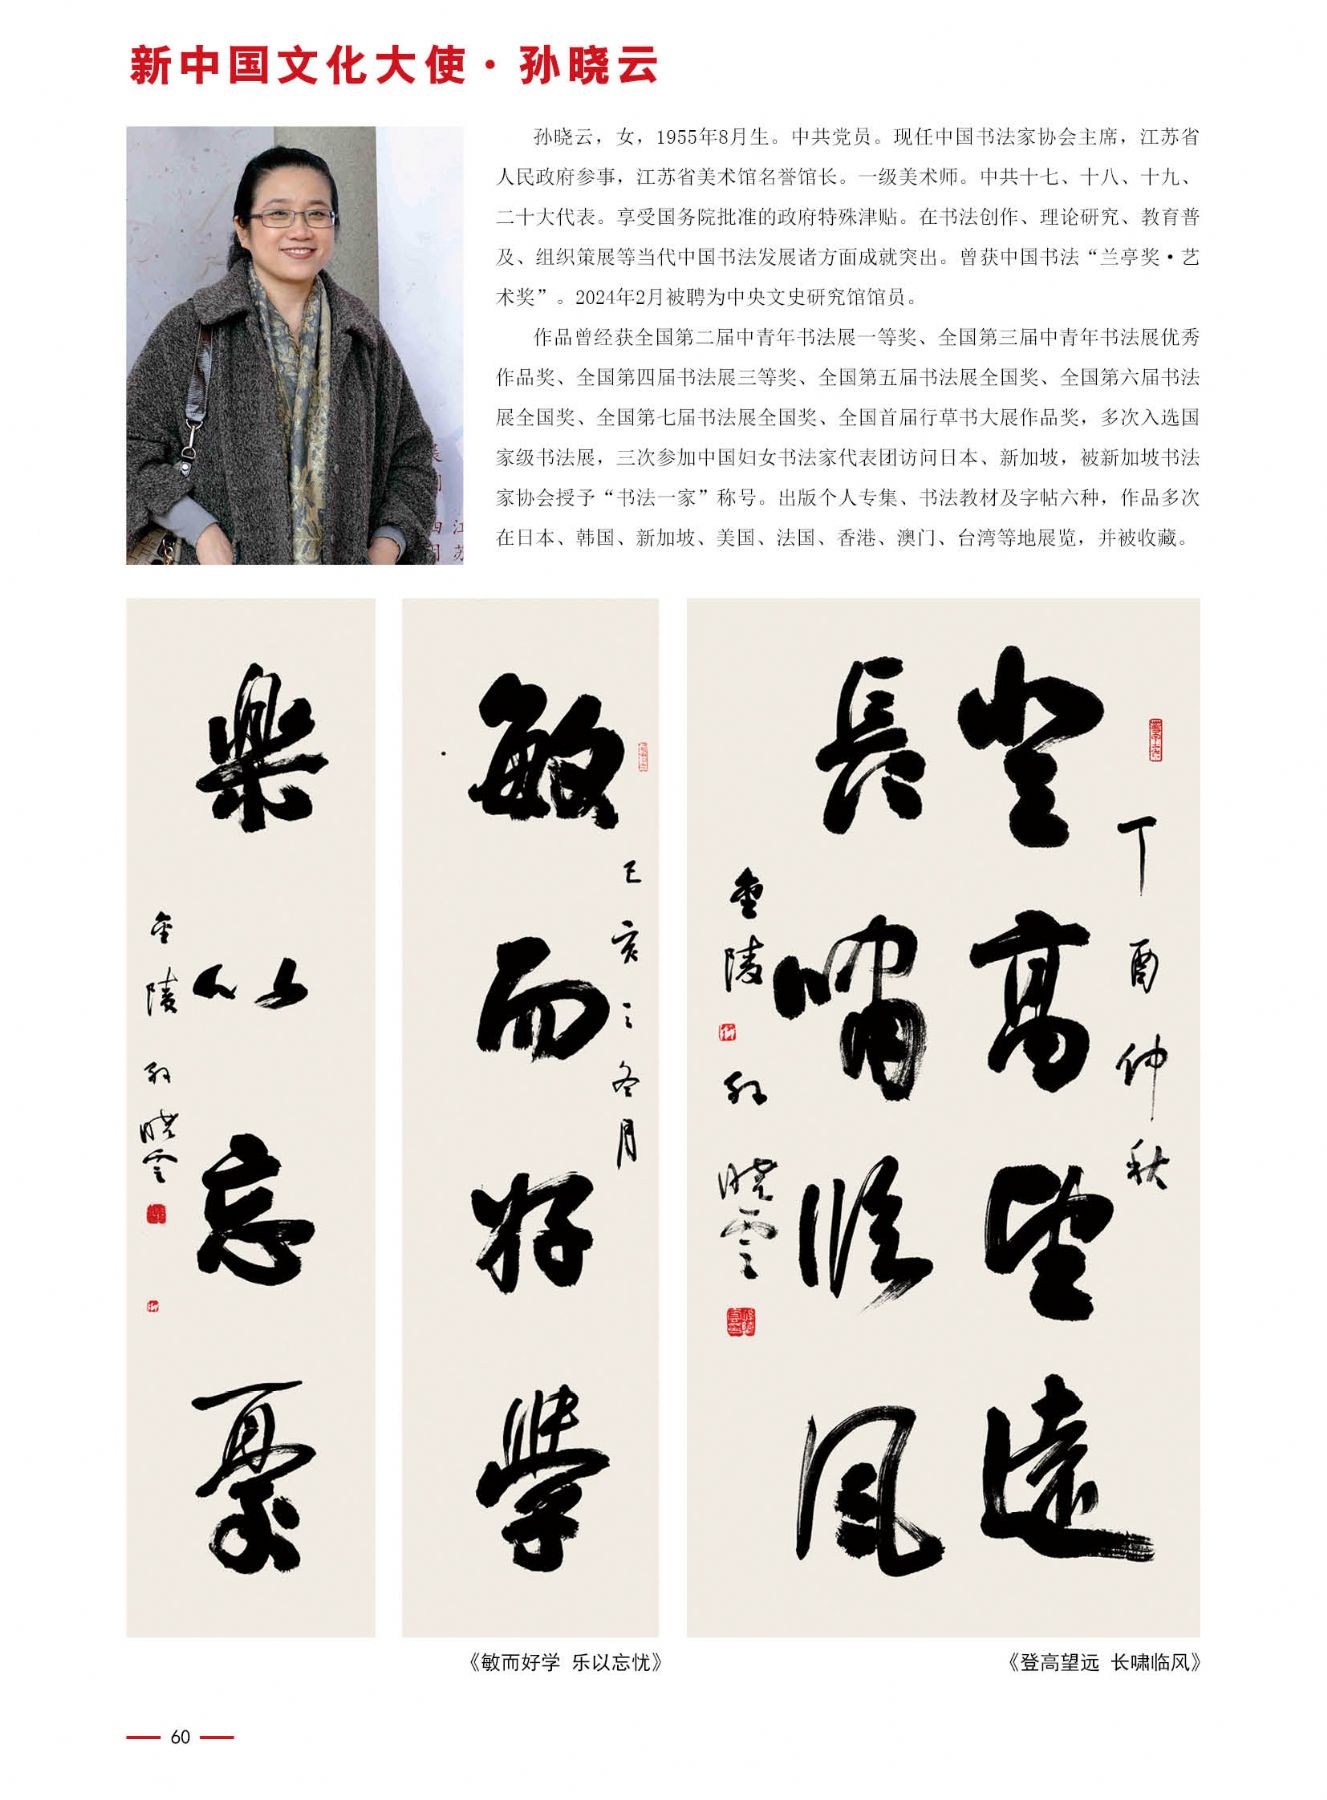 新中国文化大使·孙晓云
孙晓云，女，1955年8月生。中共党员。现任中国书法家协会主席，江苏省
人民政府参事，江苏省美术馆名誉馆长。一级美术师。中共十七、十八、十九、
二十大代表。享受国务院批准的政府特殊津贴。在书法创作、理论研究、教育普
及、组织策展等当代中国书法发展诸方面成就突出。曾获中国书法“兰亭奖·艺
术奖”。2024年2月被聘为中央文史研究馆馆员。
作品曾经获全国第二届中青年书法展一等奖、全国第三届中青年书法展优秀
作品奖、全国第四届书法展三等奖、全国第五届书法展全国奖、全国第六届书法
展全国奖、全国第七届书法展全国奖、全国首届行草书大展作品奖，多次入选国
家级书法展，三次参加中国妇女书法家代表团访问日本、新加坡，被新加坡书法
家协会授予“书法一家”称号。出版个人专集、书法教材及字帖六种，作品多次
在日本、韩国、新加坡、美国、法国、香港、澳门、台湾等地展览，并被收藏。
江苏
己亥之冬月
敏而好学
樂以忘憂
金陵孙晓雲
丁酉仲秋
登高望遠
長嘯临风
金陵孙晓雲
《敏而好学 乐以忘忧》
《登高望远 长啸临风》
60